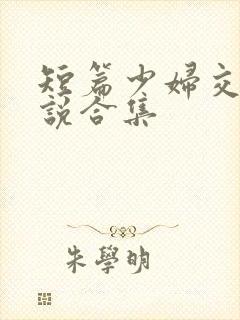 短篇少婦交
說合集
朱學明